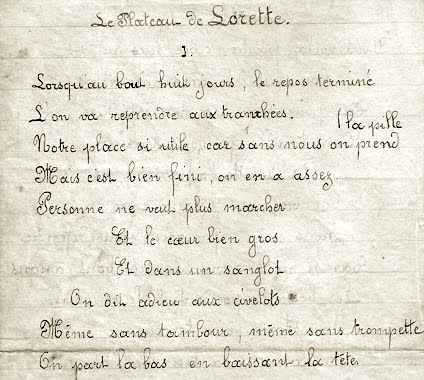 Le Plateau de Lorette.
1.
Lorsqu'au bout huit jours, le repos terminé
L'on va reprendre aux tranchées.
Notre place si utile, car sans nous on prend (la pille
Mais c'est bien fini, on en a assez.
Personne ne veut plus marcher
Et le cœur bien gros
Et dans un sanglot
On dit adieu aux civelots
Même sans tambour, même sans trompette
On part la bas en baissant la tête.